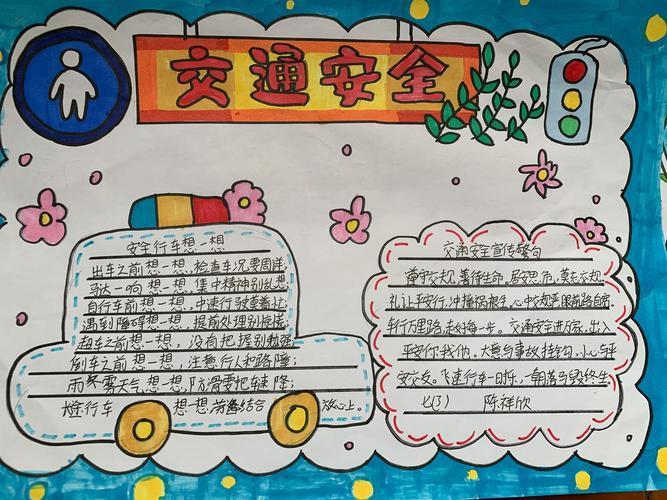 交通安全
安全行车想一想
出车之前想一想,检查车况要周详;
马达一响想一想,集中精神别乱想;
自行车前想一想,中速行驶
遇到障碍想一想,提前处理别
超车之前想一想,没有把握别勉强;
倒车之前想一想,注意行人和路障;
雨雾天气想一想,防滑要把车速降;
行车 想一想 结合 放心上。
交通安全宣传警句
遵守交规,善待生命,居安思危,莫忘交规
礼让平安行,冲撞祸根生,心中交规严眼前路自宽
车行万里路,走好每一步。交通安全进万家,出入
平安你我他。大意与事故挂钩,小心与平
安交友。飞速行车一日 ,一朝 毁终生
七(3) 陈祥欣